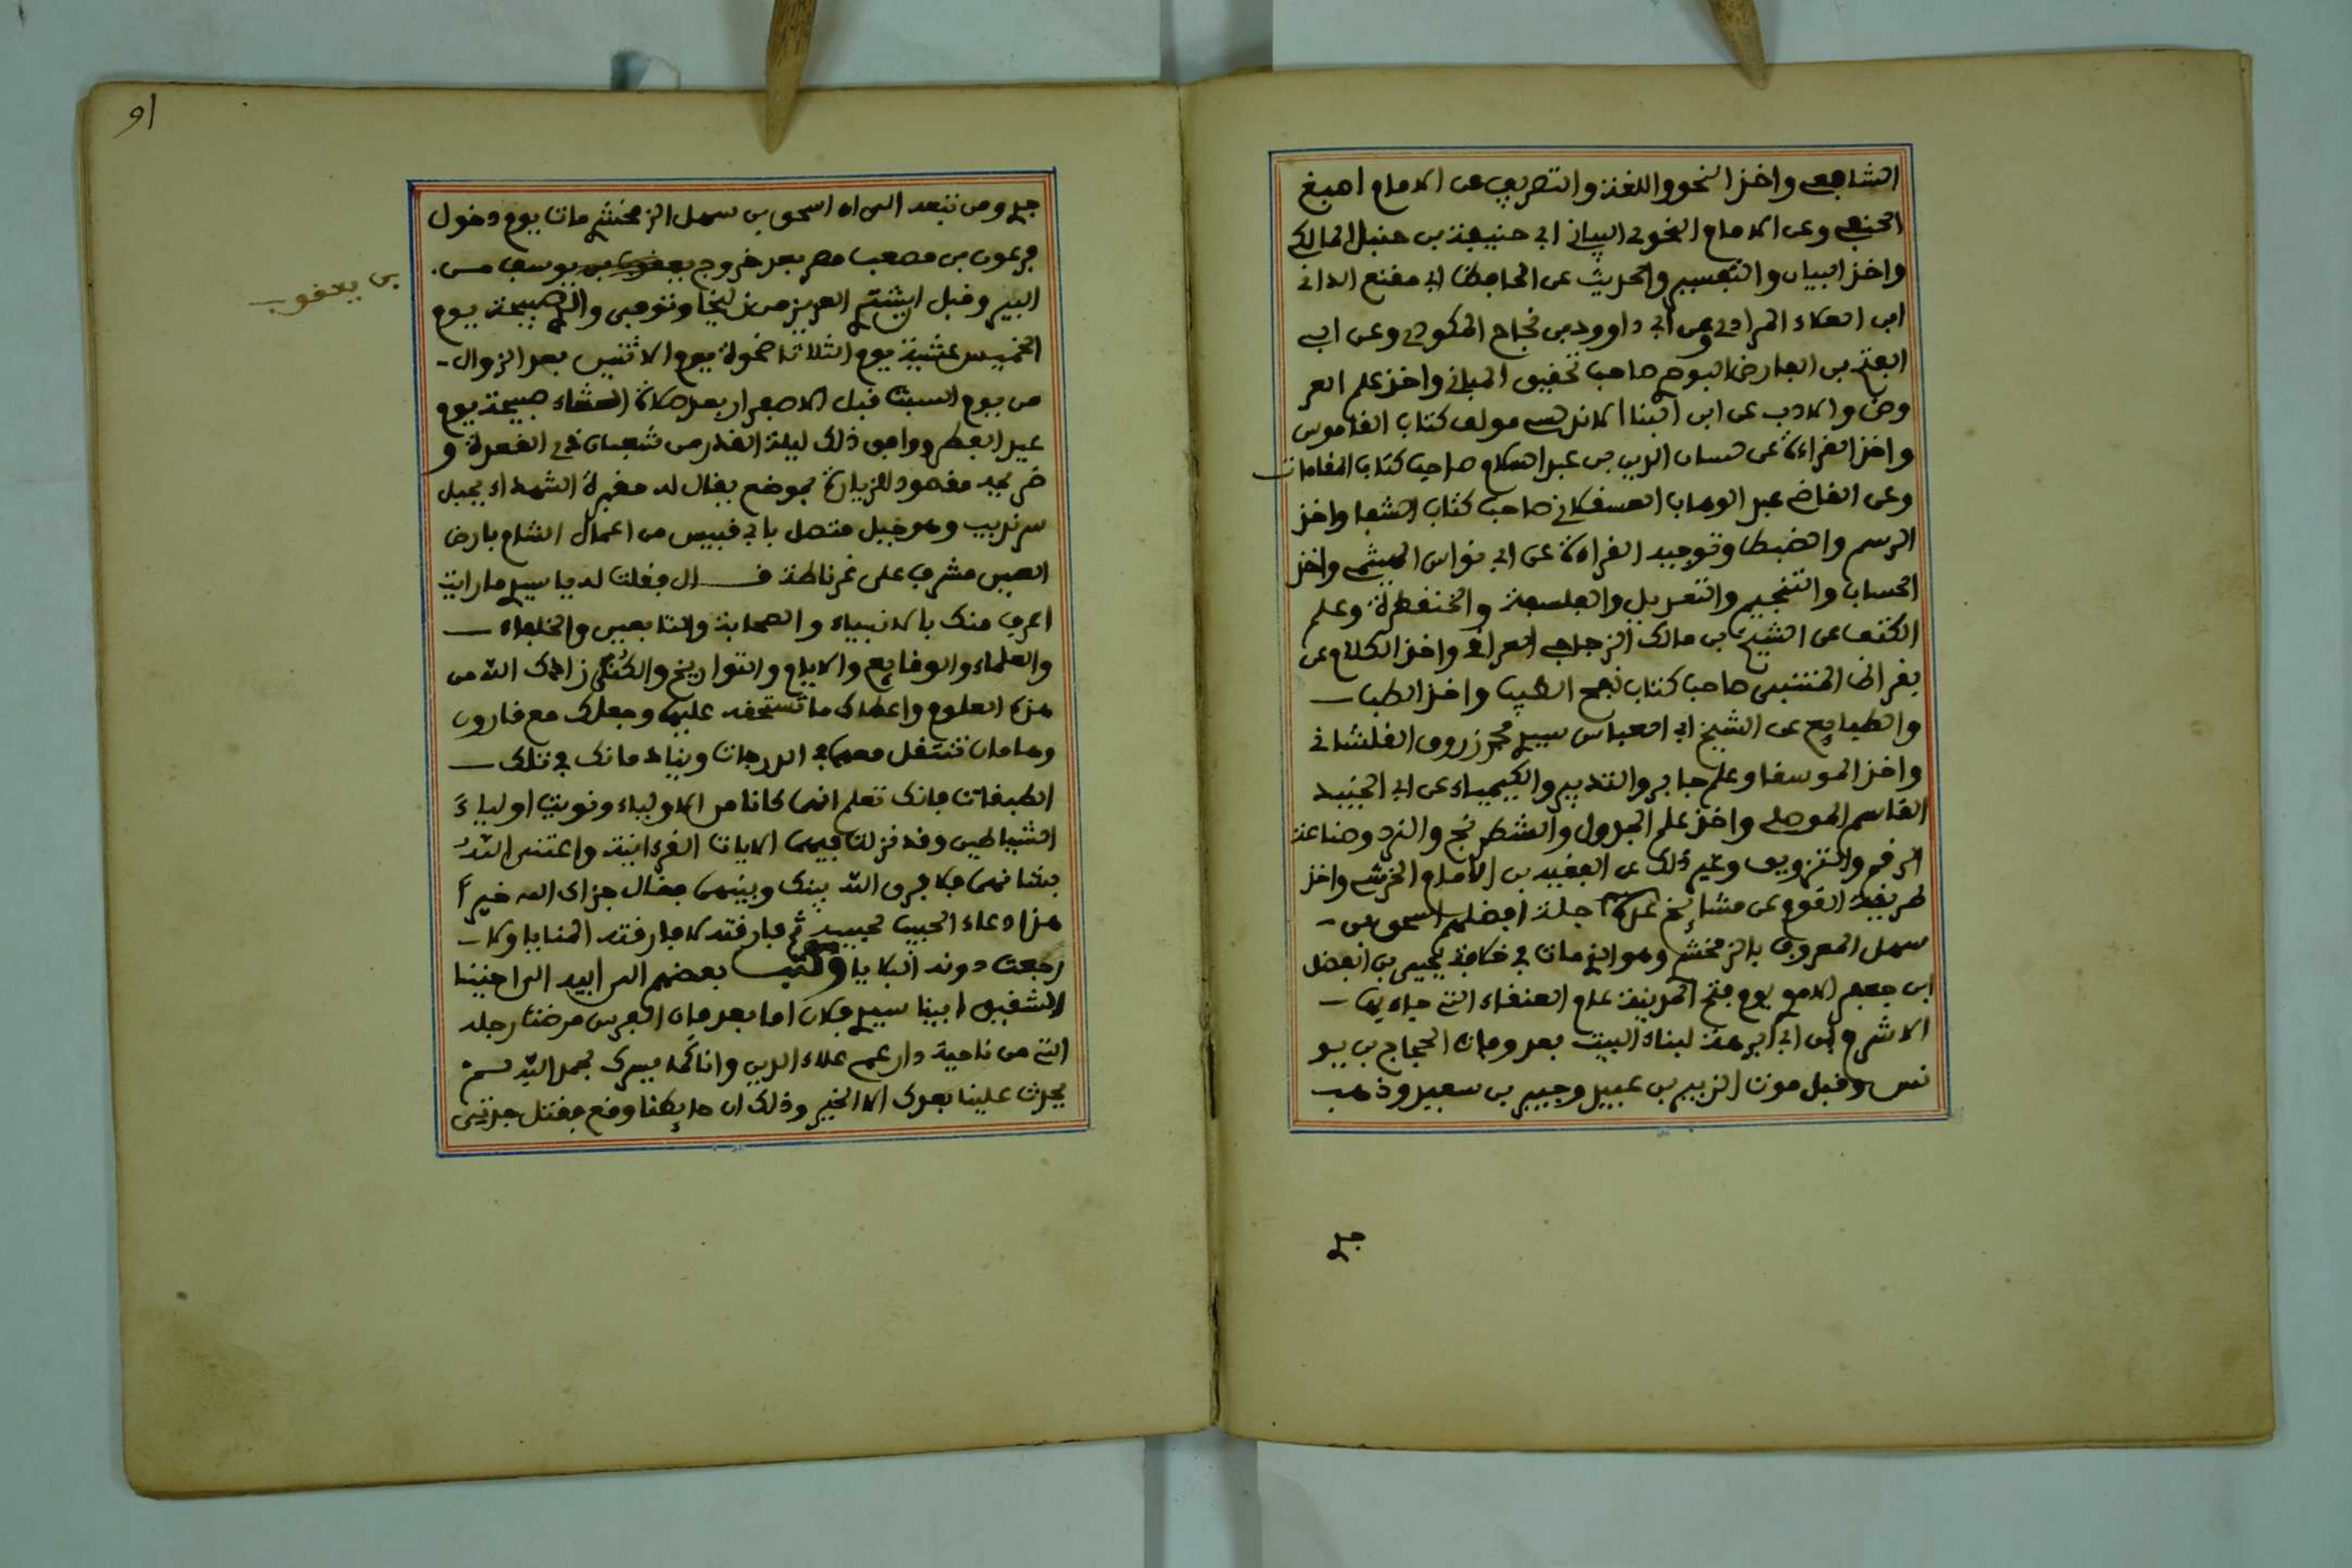 الشافعي واخذ النحو واللغة والتصريف عن الامام اصبغ
الحنفي وعن الامام النحوي البياني ابي حنيفة بن حنبل المالكي
واخذ البيان والتفسير والحديث عن الحافظ ابي مقنع الداني
ابن العلاء المرادي وعن ابي داوود بن نجاح المكودي وعن ابي
الفتح بن الفارض البوصي صاحب تحقيق المباني واخذ علم العر
وض والادب عن ابن البنا الاندلسي مولف كتاب القاموس
واخذ القراءة عن حسان الدين بن عبد السلام صاحب كتاب المقامات
وعن القاضي عبد الوهاب العسقلاني صاحب كتاب الشفا واخذ
الرسم والضبط وتوجيه القراءة عن ابي نواس الميثمي واخذ
الحساب والتنجيم والتعديل والفلسفة والخنفطرة وعلم
الكتف عن الشيخ بن مالك الزجاجي العراقي واخذ الكلام عن
بقراط المتنبي صاحب كتاب نفح الطيب واخذ الطب
والطبايع عن الشيخ ابي العباس سيدي محمد زروق القلشاني
واخذ الموسقا وعلم جابر والتدبير والكيمياء عن ابي الجنيد
القاسم الموصلي واخذ علم الجدول والشطرنج والنرد وصناعة
الرقم والتزويق وغير ذلك عن الفقيه بن الامام الخرشي واخذ
طريقة القوم عن مشايخ جلة افضلهم اسحق بن
سهل المعروف بالزمخشري وهو الذي مات في خلافة يحيى بن الفضل
ابن جعفر الاموي يوم فتح المدينة عام العنقاء التي جاء بها
الاشرم بن ابي ابرهة لبناء البيت بعد وفات الحجاج بن يو
نس وقبل موت الزبير بن عبيد وجبير بن سعيد وذهب
جدي
91
جدي ومن تبعه الى ان اسحق بن سهل الزمخشري مات يوم دخول
فرعون بن مصعب مصر بعد خروج يوسف من
بن يعقوب
البير وقبل ان يشتري العزيز من زليخا وتوفي والدي صبيحة يوم
الخميس عشية يوم الثلاثا ضحوة يوم الاثنين بعد الزوال
من يوم السبت قبل الاصفرار بعد صلاة العشاء صبيحة يوم
عيد الفطر ووافق ذلك ليلة القدر من شعبان ذي القعدة و
ضريحه مقصود للزيارة بموضع يقال له مقبرة الشهداء بجبل
سرنديب وهو جبل متصل بابي قبيس من اعمال الشام بارض
الصين مشرف على غرناطة قال فقلت له يا سيدي ما رايت
اعرف منك بالانبياء والصحابة والتابعين والخلفاء
والعلماء والوقايع والايام والتواريخ والكتب زادك الله من
هذه العلوم واعطاك ما تستحقه عليها وجعلك مع قارون
وهامان تنتقل معهما في الدرجات وينالهما نك في تلك
الطبقات فانك تعلم انهما كانا من الاولياء ونويت اولياء
الشياطين وقد نزلت فيهما الايات القرءانية واعتنى الله
بشانهما فلا فرق الله بينك وبينهما فقال جزاك الله خيرا
هذا دعاء الحبيب لحبيبه ثم فارقته لا فارقته المنايا ولا
رجعت دونه البلايا وكتب بعضهم الى ابيه الى اخينا
الشقيق ابينا سيدي فلان اما بعد فان الفرس مرضت رجله
التي من ناحية دار عمي علاء الدين وانا كما يسرك بحمد الله لم
يحدث علينا بعدك الا الخير وذلك ان حايطنا وقع فقتل جدتي